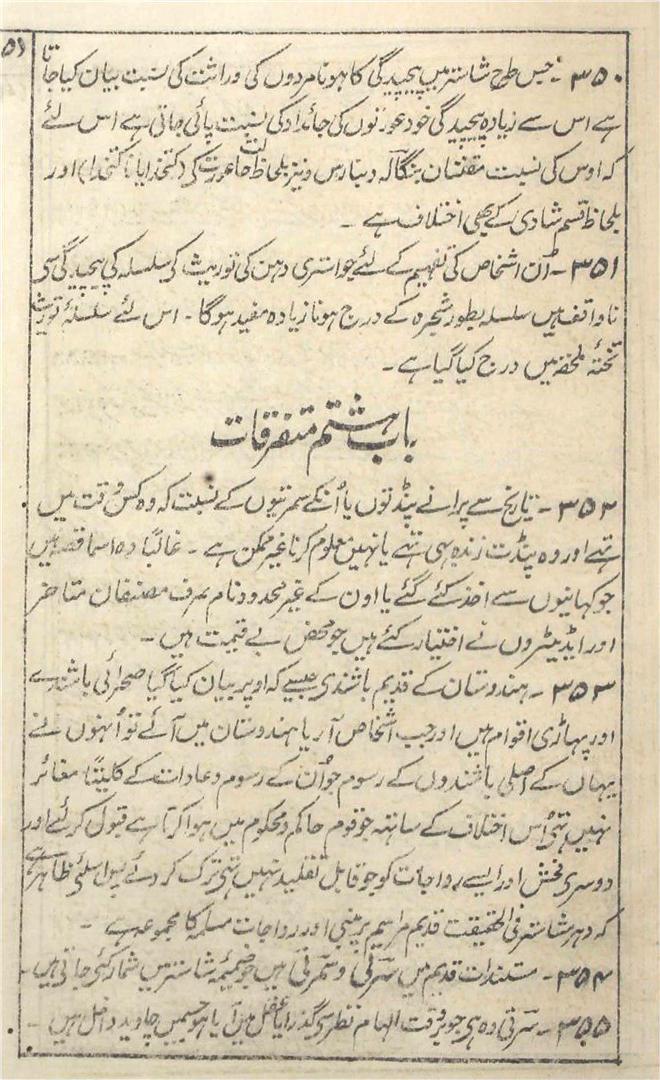 ۵۱
۳۵۰ - جس طرح شاستر میں پیچیدگی کا ہونا مردوں کی وراثت کی نسبت بیان کیا جاتا
ہے اس سے زیادہ پیچیدگی خود عورتوں کی جائداد کی نسبت پائی جاتی ہے اس لئے
کہ اوس کی نسبت مقننان بنگالہ و بنارس و نیز بلحاظ حالت عورت کی (کتخدا یا ناکتخدا) اور
بلحاظ قسم شادی کے بھی اختلاف ہے ۔
۳۵۱ - اُن اشخاص کی تفہیم کے لئے جو استری دہن کی توریث کی سلسلہ کی پیچیدگی سی
ناواقف ہیں سلسلہ بطور شجرہ کے درج ہونا زیادہ مفید ہوگا ۔ اس لئے سلسلۂ توریث
تختۂ ملحقہ میں درج کیا گیا ہے ۔
باب ہشتم متفرقات
۳۵۲ - تاریخ سے پرانے پنڈتوں یا اُنکے سمرتیوں کے نسبت کہ وہ کس وقت میں
تہے اور وہ پنڈت زندہ بہی تہے یا نہیں معلوم کرنا غیر ممکن ہے ۔ غالباً وہ اسما قصہ ہیں
جو کہانیوں سے اخذ کئے گئے یا اون کے غیر محدود نام صرف مصنفان متاخر
اور ایڈیٹروں نے اختیار کئے ہیں جو محض بے قیمت ہیں ۔
۳۵۳ - ہندوستان کے قدیم باشندی جیسے کہ اوپر بیان کیا گیا صحرائی باشندے
اور پہاڑی اقوام ہیں اور جب اشخاص آریا ہندوستان میں آئے تو اُنہوں نے
یہاں کے اصلی باشندوں کے رسوم جو اُن کے رسوم و عادات کے کلیتاً مغائر
نہیں تہی اُس اختلاف کے ساتہہ جو قوم حاکم و محکوم میں ہوا کرتا ہے قبول کر لئے اور
دوسری فحش اور ایسے رواجات کو جو قابل تقلید نہیں تہی ترک کر دئے پس اسلئی ظاہر ہے
کہ دہرم شاستر فی الحقیقت قدیم مراسم پر مبنی اور رواجات مسلمہ کا مجموعہ ہے ۔
۳۵۴ - مستندات قدیم میں سرتی و سمرتی ہیں جو ضمیمۂ شاستر میں شمار کئی جاتی ہیں ۔
۳۵۵ - سرتی وہ ہی جو بوقت الہام نظر سی گذرا یا عقل میں آیا ہو جسمیں چاروید داخل ہیں ۔